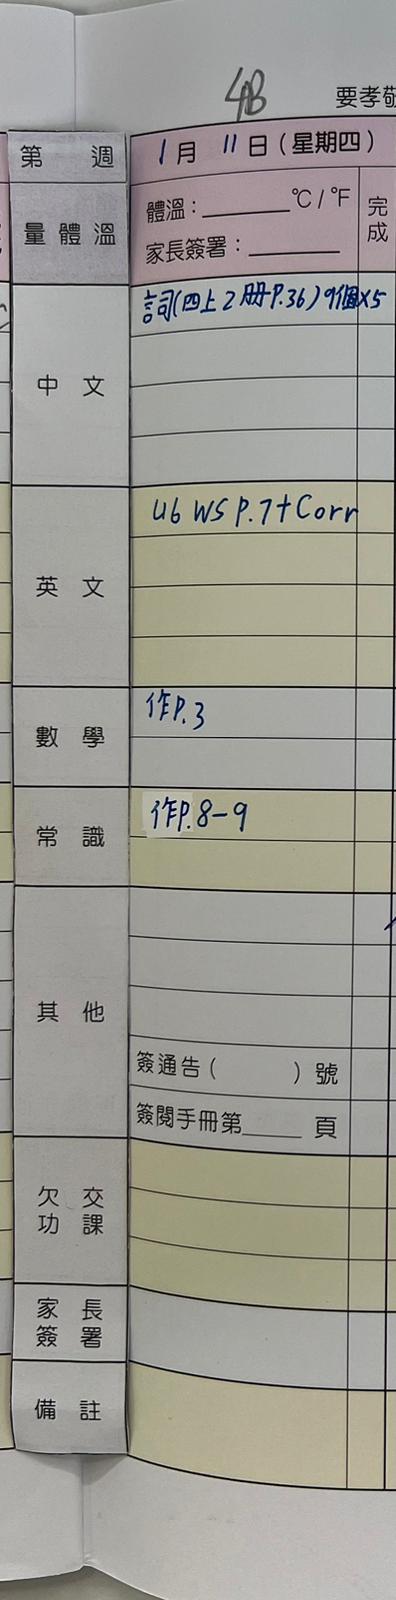 4B
要孝敬
第 週
1月 11日(星期四)
量體溫
體溫:______°C/°F
家長簽署:______
完成
中文
詞(四上2冊P.36)9個x5
英文
U6 WS P.7+Corr
數學
作P.3
常識
作P.8-9
其他
簽通告( )號
簽閱手冊第____頁
欠交功課
家長簽署
備註